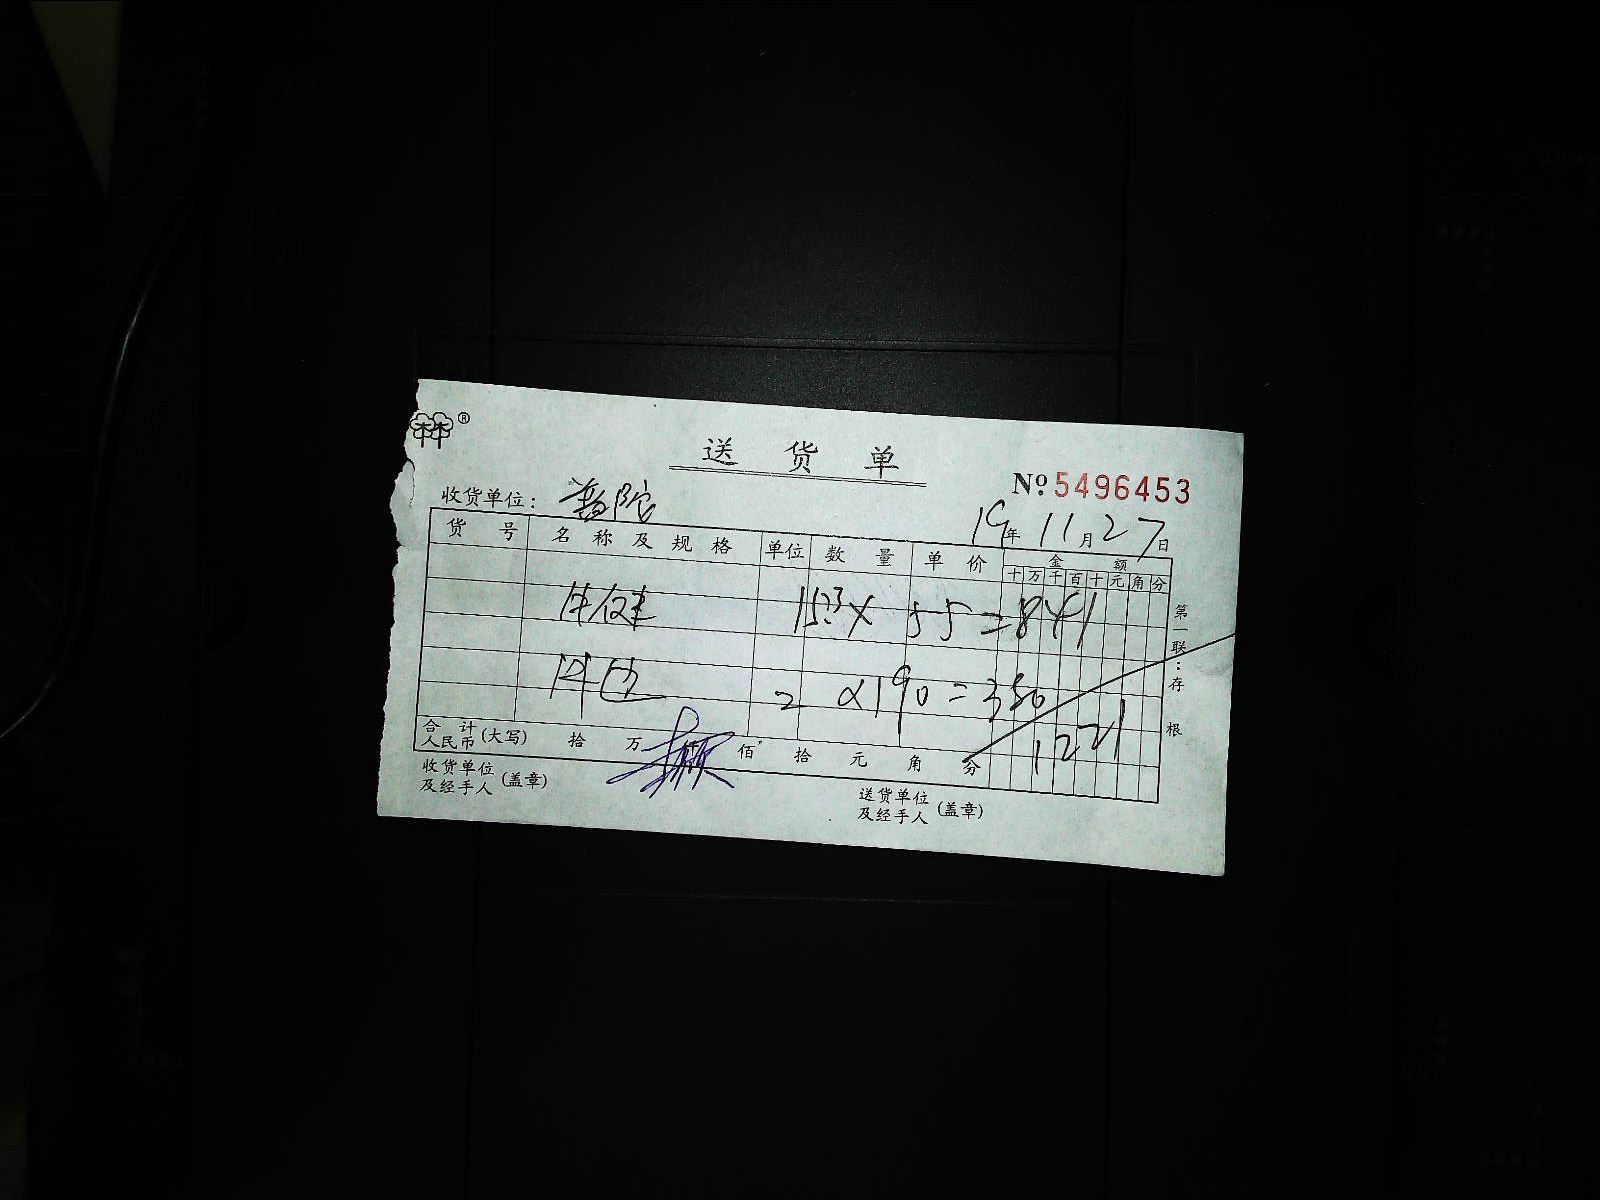 ®
送 货 单
№ 5496453
收货单位: 普陀
19年 11月 27日
货 号 名 称 及 规 格 单位 数 量 单 价 金 额
十 万 千 百 十 元 角 分
牛腱 153 × 55 = 841
2 ×190 = 380
1221
合 计 人民币 (大写) 拾 万 仟 佰 拾 元 角 分
收货单位 及经手人 (盖章)
送货单位 及经手人 (盖章)
第 联:存 根